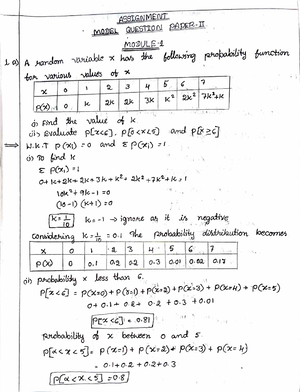 ASSIGNMENT
MODEL QUESTION PAPER-II
MODULE-1
1.a) A random variable x has the following probability function
for various values of x
x 0 1 2 3 4 5 6 7
P(x) 0 k 2k 2k 3k k² 2k² 7k²+k
i) Find the value of k
ii) Evaluate P[x<6], P[0<x<5] and P[x≥6]
⇒ W.K.T P(xi) ≥0 and ΣP(xi)=1
(i) To find k
ΣP(xi)=1
0+k+2k+2k+3k+k²+2k²+7k²+k=1
10k²+9k-1=0
(10-1)(k+1)=0
k=1/10 k=-1 → ignore as it is negative
Considering k=1/10=0.1 The probability distribution becomes
x 0 1 2 3 4 5 6 7
P(x) 0 0.1 0.2 0.2 0.3 0.01 0.02 0.17
(ii) probability x less than 6.
P[x<6] = P(x=0)+P(x=1)+P(x=2)+P(x=3)+P(x=4)+P(x=5)
0+0.1+0.2+0.2+0.3+0.01
P[x<6] = 0.81
Probability of x between 0 and 5
P[0<x<5] = P(x=1)+P(x=2)+P(x=3)+P(x=4)
= 0.1+0.2+0.2+0.3
P[0<x<5]=0.8